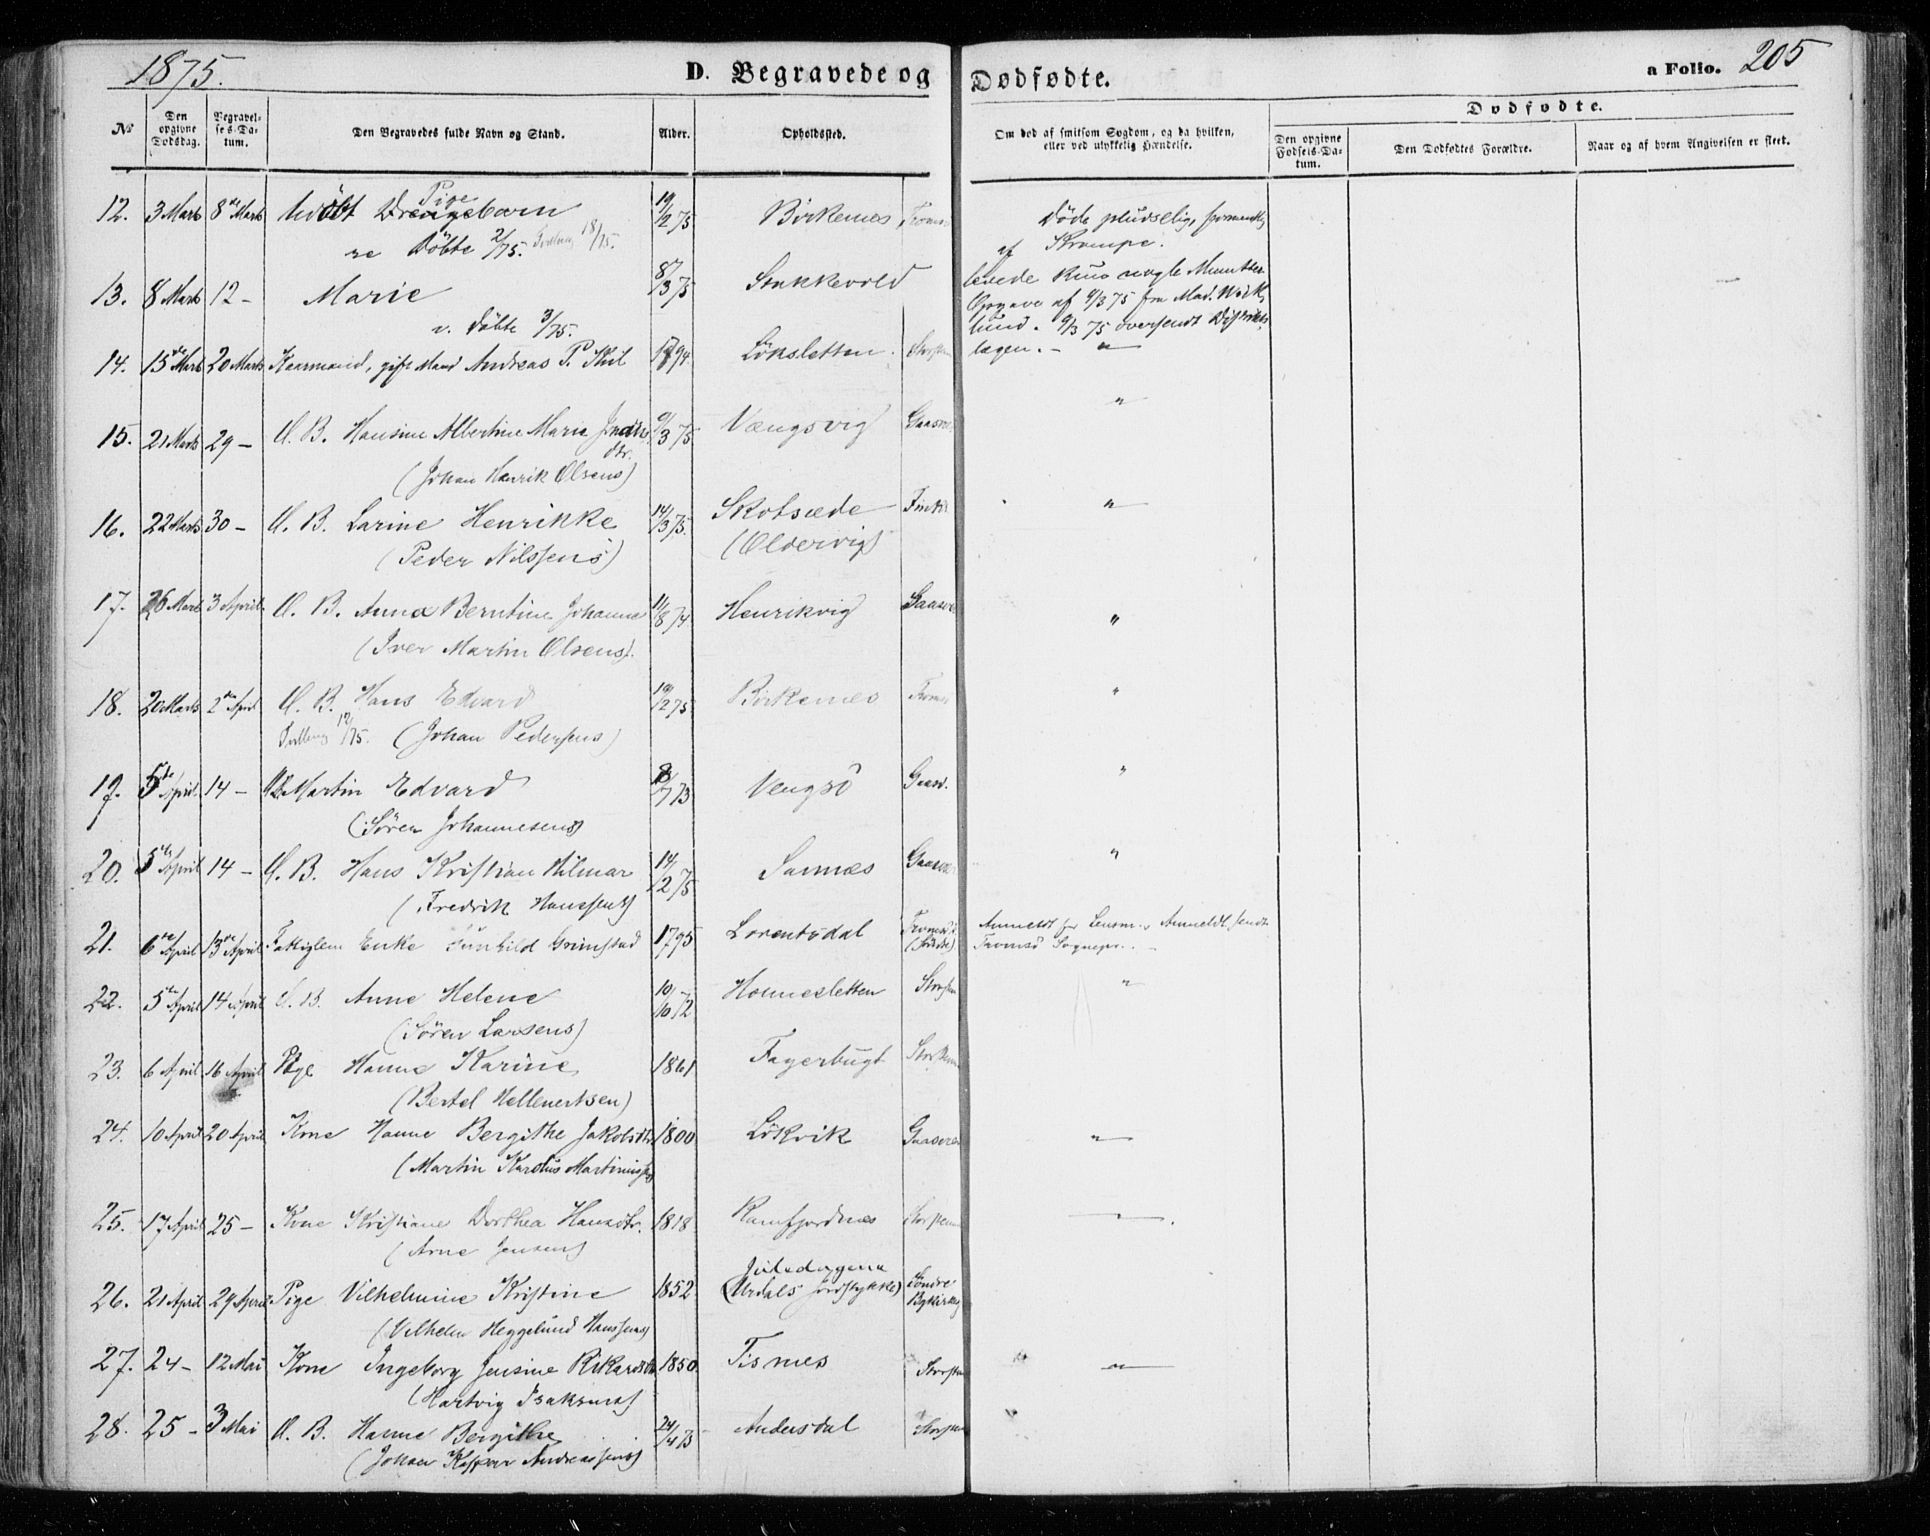 1875.
D. Begravede og Dødfødte.
a Folio. 205
No
Den opgivne Dødsdag.
Begravelses-Datum.
Den Begravedes fulde Navn og Stand.
Alder.
Opholdssted.
Om død af smitsom Sygdom, og da hvilken, eller ved ulykkelig Hændelse.
Dødfødte.
Den opgivne Fødsels-Datum.
Den Dødfødtes Forældre.
Naar og af hvem Angivelsen er skeet.
Pige
12. 3 Marts 8de Marts Udøbt Drengebarn 19/2 75 Birkenes Døde pludselig, formentlig
Døbte 2/75. 18/75. af Krampe.
13. 8 Marts 12 - Marie 8/3 75 Stakkevold levede kun nogle Minutter
Døbte 3/75. Opgave af 9/3 75 fra Mad. Wick
lund. 9/3 75 oversendt Distrikts
14. 15de Marts 20 Marts Kaarmand, gift Mand Andreas P. 1794. Løksletten. lægen. - "
15. 21 Marts 29 - U. B. Hansine Albertine Marie 9/3 75 Vængsvig "
dtr.
(Johan Henrik Olsens)
16. 22 Marts 30 - U. B. Larine Henrikke 14/3 75. Skotsæde "
(Peder Nilssens) (Oldervig)
17. 26 Marts 3 April U. B. Anna Berntine Johanna 11/8 74 Henrikvig "
(Iver Martin Olsens).
18. 20 Marts 2den April U. B. Hans Edvard 19/2 75 Birkenes "
12/75. (Johan Pedersens)
19. 5te April 14 - Martin Edvard 8/7 73 Vengsö Gaasv. "
(Sören Johannesens)
20. 5te April 14 - U. B. Hans Kristian Hilmar 19/2 75 Sannæs "
(Fredrik Hanssens)
21. 6te April 13de April Fattiglem Enke Gunhild Grimstad 1795 Lorentsdal Anmeldt for Lensm. Anmeldt. sendt
Tromsö Sognepr. -
22. 5te April 14 April U. B. Anne Helene 10/10 72 Hounesletten "
(Sören Larsens)
23. 6 April 16 April Pige Hanna Karine 1861 Fagerbugt
(Bertel Hellenertsen)
24. 10 April 20 April Kone Hanne Bergithe Jakobsdtr 1800 Lökvik "
(Martin Karolus Martinussen)
25. 17 April 25 - Kone Kristiane Dorthea Hansdtr. 1818 Ramfjordnæs "
(Arne Jensens)
Juledagene
26. 21 April 29 April Pige Vilhelmine Kristine 1852 (Urdals Jordstykke) Söndre
(Vilhelm Heggelund Hanssens)
27. 24 - 12 Mai Kone Ingeborg Jensine Rikardsdtr 1850 Tisnes "
(Hartvig Isaksens)
28. 25 - 3 Mai U. B. Hanna Bergithe 24/4 75 Andersdal
(Johan Kasper Andreassens)